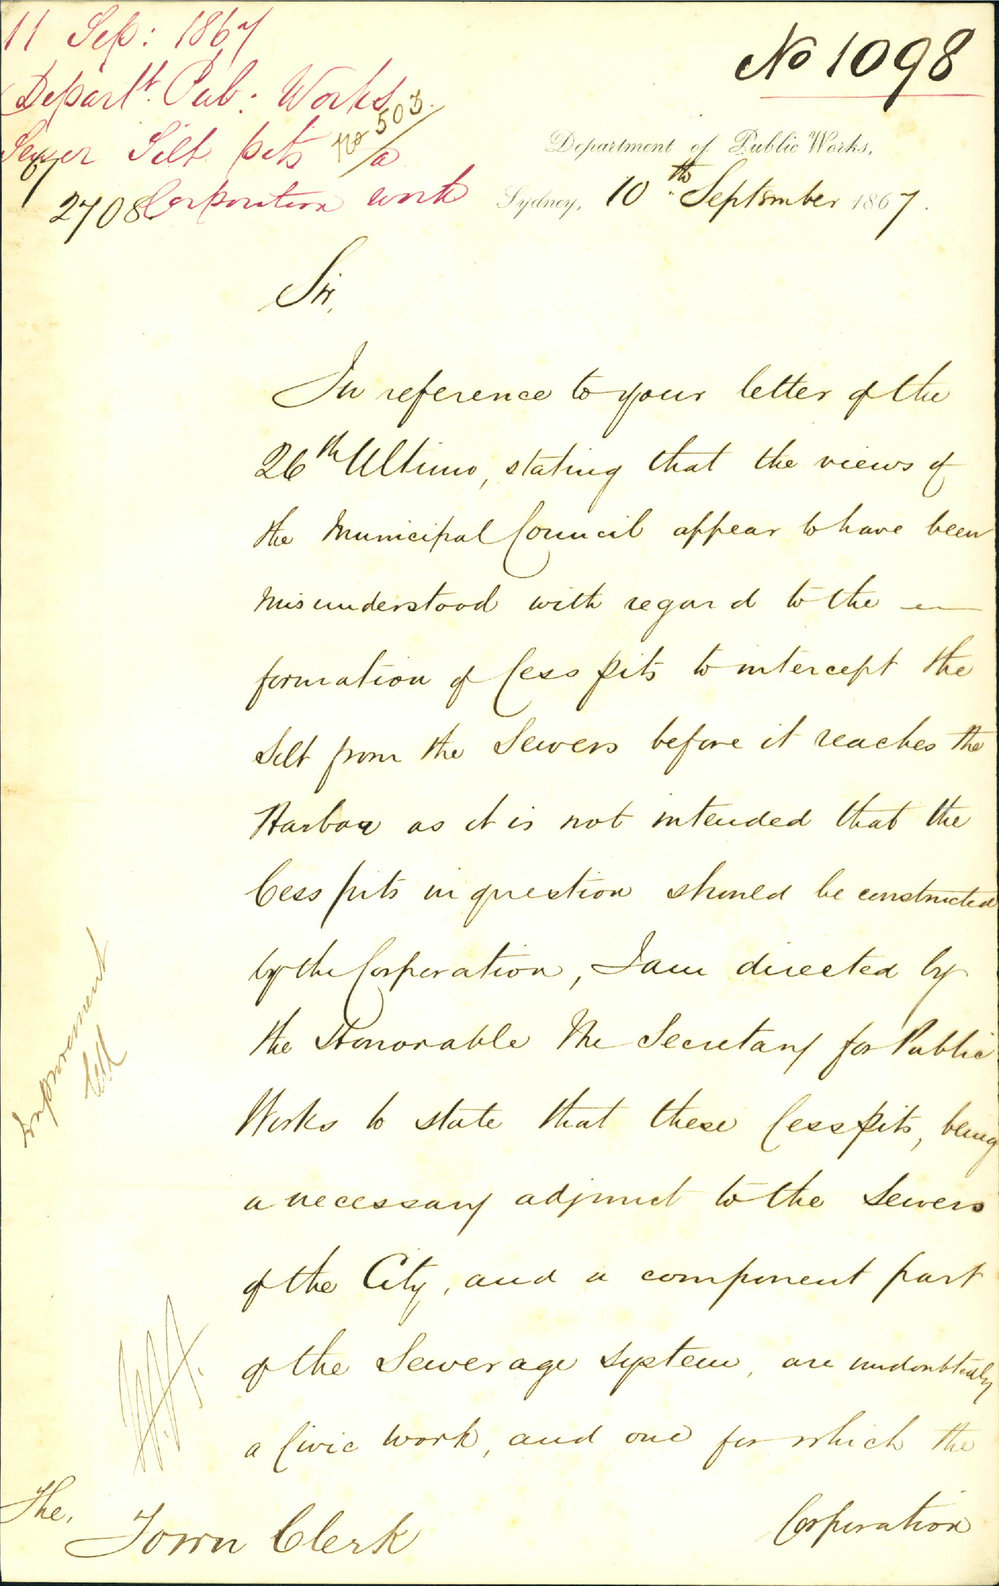 11 Sep: 1867
Departt. Pub: Works
Sewer Silt pits
a
Corporation work
No 503
67
2708
No 1098
Department of Public Works,
Sydney, 10th September 1867.
Sir,
In reference to your letter of the
26th Ultimo, stating that the views of
the Municipal Council appear to have been
misunderstood with regard to the
formation of Cess pits to intercept the
Silt from the Sewers before it reaches the
Harbor as it is not intended that the
Cess pits in question should be constructed
by the Corporation, I am directed by
the Honorable the Secretary for Public
Works to state that these Cesspits, being
a necessary adjunct to the Sewers
of the City, and a component part
of the Sewerage system, are undoubtedly
a Civic work, and one for which the
Corporation
Improvement
The,
Town Clerk